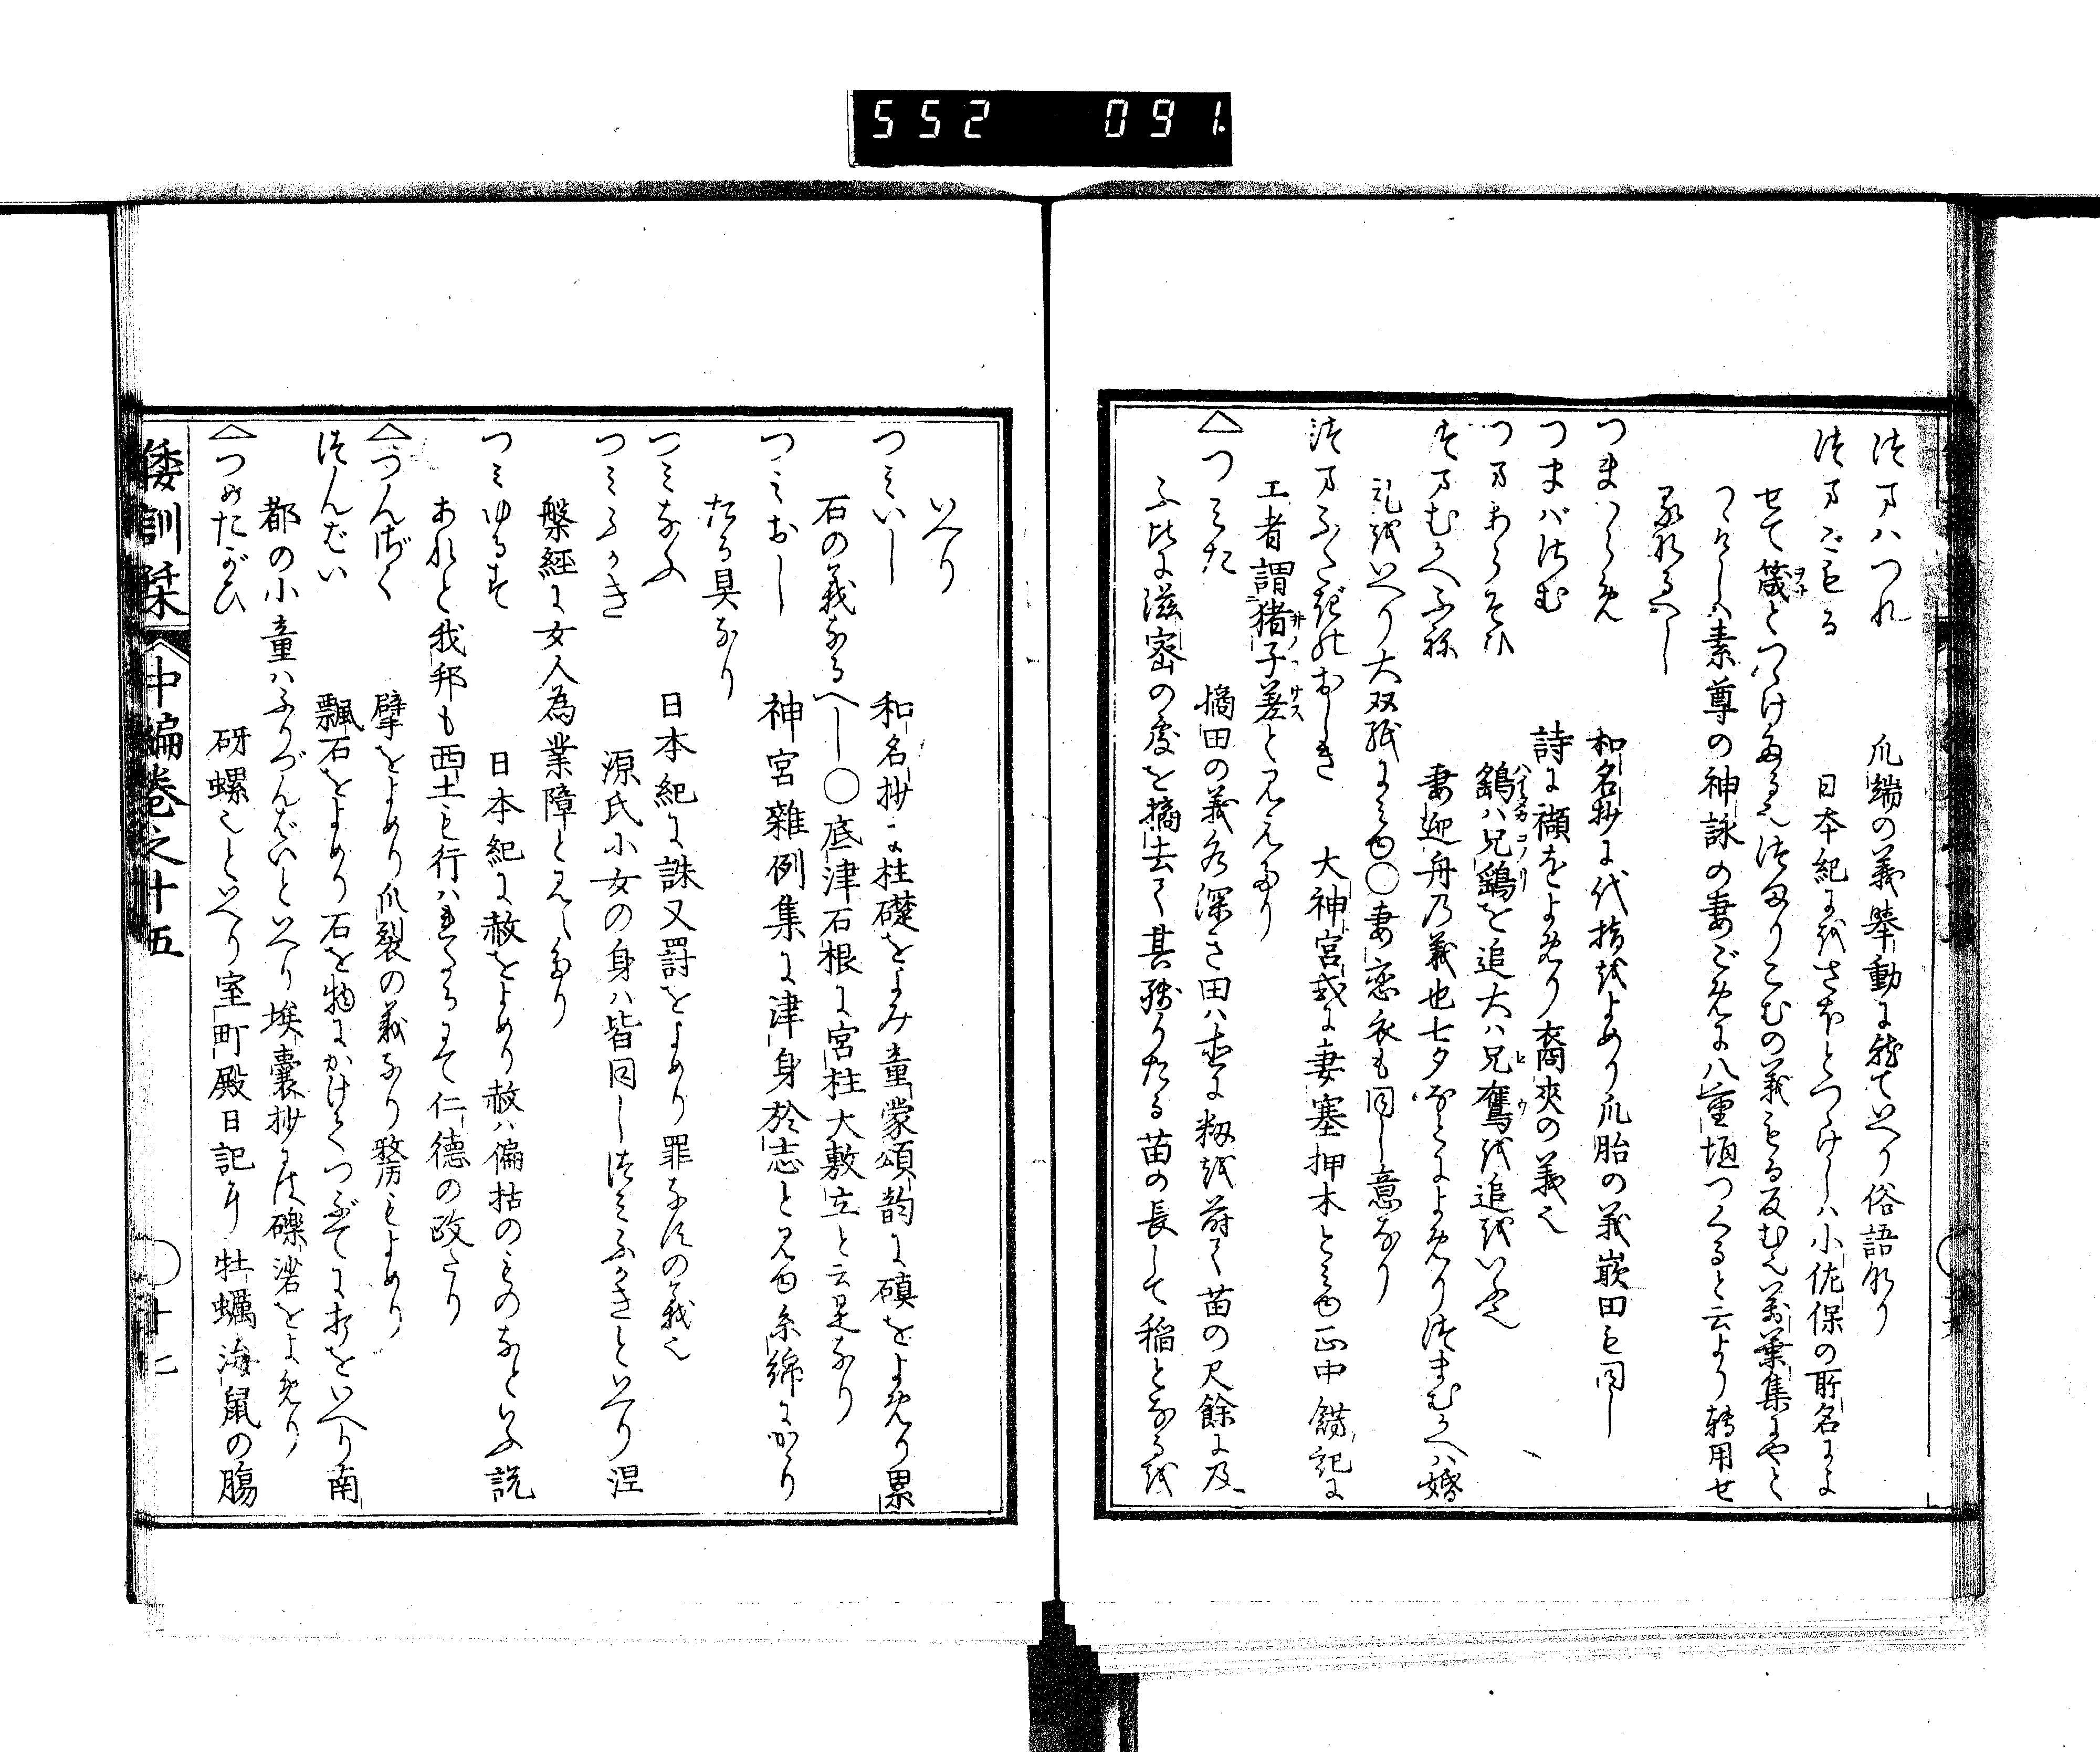 552 091.
つまはづれ 爪端の義挙動に就ていへり俗語なり
つまごもる 日本紀に
せて箴とつゞけたるもつまりこむの義もる反む也万葉集にやと
つゞけしは素尊の神詠の妻ごめに八重垣つくると云より転用せ
るなるへし
つまはらめ 和名抄に代指をよめり爪胎の義嵌田も同し
つまばさむ 詩に襭をよめり裔夾の義也
鷂ハ兄鷂を追大ハ兄鷹を追をいふ也
つまむかへふね 妻迎舟乃義也七夕なとによめりつまむかへハ婚
礼をいへり大双紙に見ゆ〇妻恋衣も同し意なり
つまふたぎのおしき 大神宮式に妻塞押木と見ゆ正中餝記に
工者謂猪子差と見えたり
△つみた 摘田の義水深き田ハ直に籾を蒔て苗の尺余に及
ふ比に滋密の処を摘去て其残りたる苗の長して稲となるを
いへり
つみいし 和名抄に柱礎をよみ童蒙頌韵に磌をよめり累
石の義なるへし〇底津石根に宮柱大敷立と云是なり
つみおし 神宮雑例集に津身於志と見ゆ糸綿にかゝり
たる具なり
つみなふ 日本紀に誅又罸をよめり罪なすの義也
つみふかき 源氏に女の身ハ皆同しつみふかきといへり涅
槃経に女人為業障と見えたり
つみゆるす 日本紀に赦をよめり赦ハ偏枯のものなといふ説
あれと我邦も西土も行ハれたるにて仁徳の政たり
△つんざく 擘をよめり爪裂の義なり
つんばい 飄石をよめり石を物にかけてつぶてに打をいへり南
都の小童ハふりづんばいといへり埃嚢抄には礫
△つめたがひ 砑螺也といへり室町殿日記に牡蠣海鼠の腸
倭訓栞 中編巻之十五 〇十七